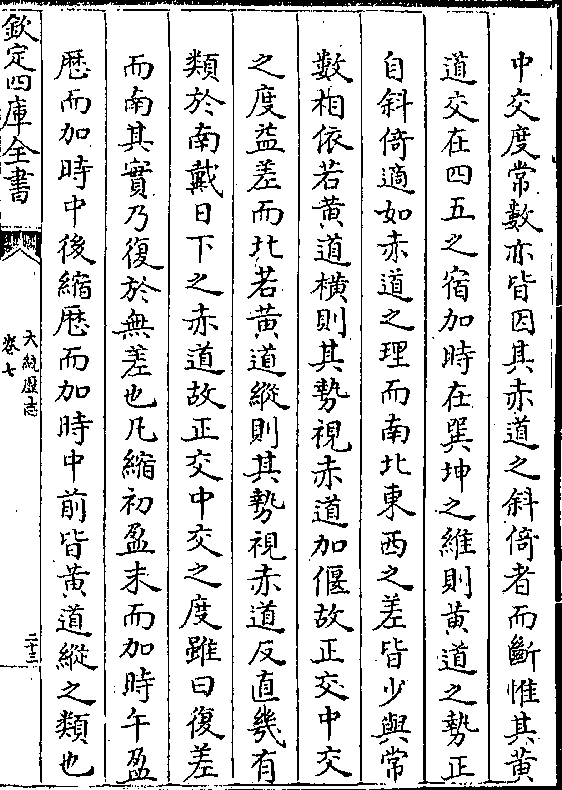 中交度常數亦皆因其赤道之斜倚者而斷惟其黃
道交在四五之宿加時在巽坤之維則黃道之勢正
自斜倚適如赤道之理而南北東西之差皆少與常
數相依若黃道橫則其勢視赤道加偃故正交中交
之度益差而北若黃道縱則其勢視赤道反直幾有
類於南戴日下之赤道故正交中交之度雖曰復差
而南其實乃復於無差也凡縮初盈末而加時午盈
厯而加時中後縮厯而加時中前皆黃道縱之類也
欽定四庫全書
大統厯志
卷七
二十三